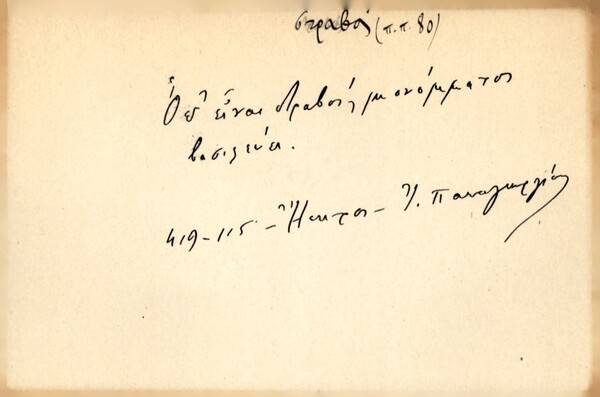 στραβός (π.π. 80)
Ὅθ' εἶναι στραβοί, μονόμματοι
βασιλεύει.
419-115 - Ἤπειρος - Ἰ. Παναγιωτίδου